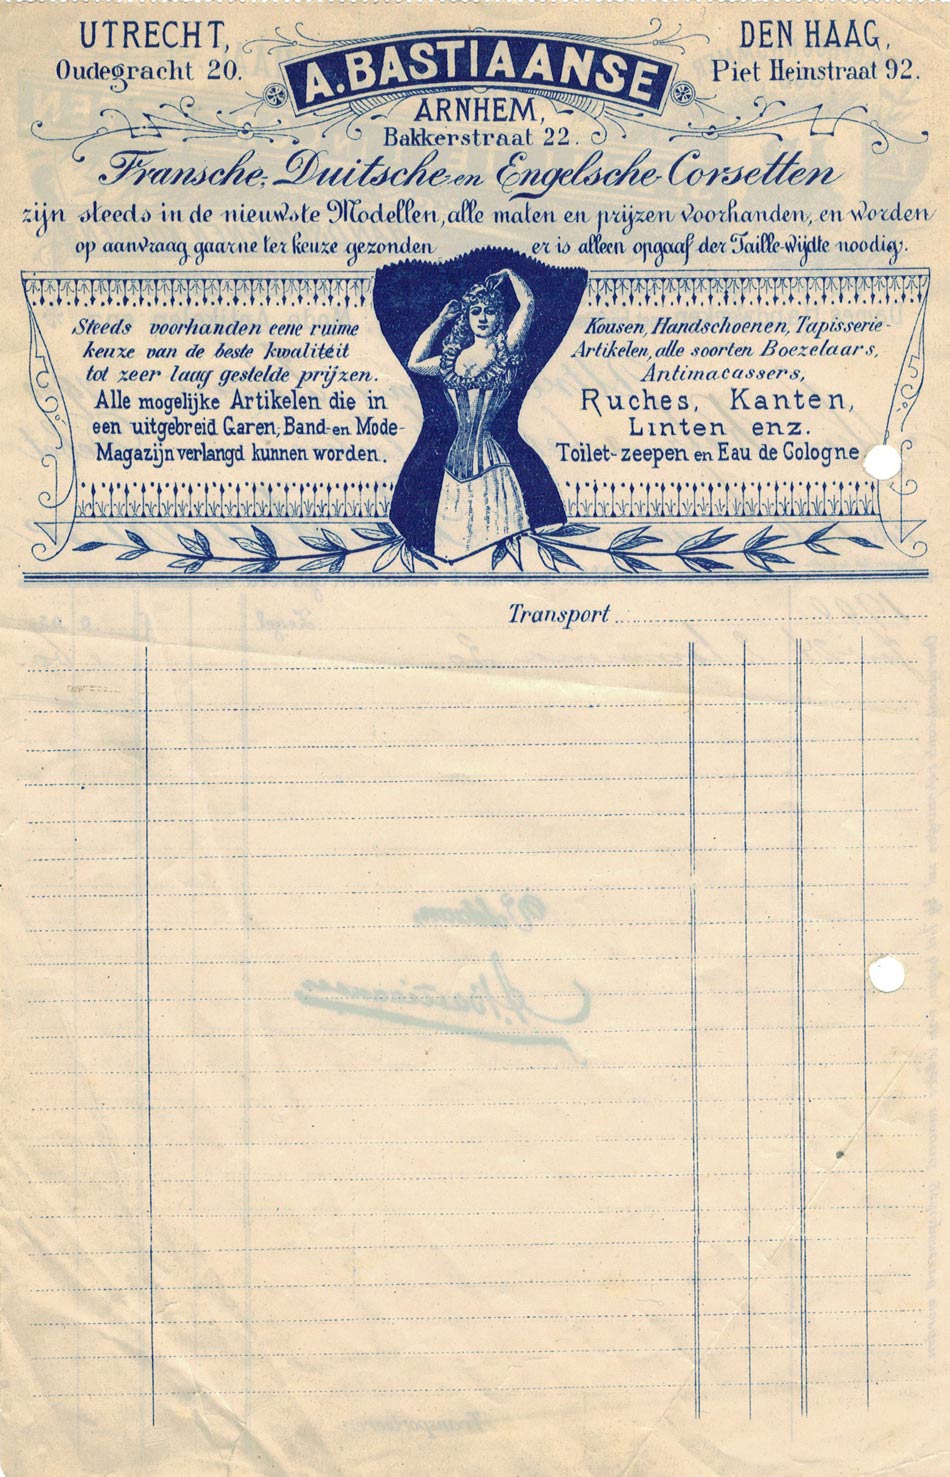 UTRECHT,
Oudegracht 20.
A. BASTIAANSE
ARNHEM,
Bakkerstraat 22.
DEN HAAG,
Piet Heinstraat 92.
Fransche, Duitsche en Engelsche Corsetten
zijn steeds in de nieuwste Modellen, alle maten en prijzen voorhanden, en worden
op aanvraag gaarne ter keuze gezonden er is alleen opgaaf der Taille-wijdte noodig.
Steeds voorhanden eene ruime
keuze van de beste kwaliteit
tot zeer laag gestelde prijzen.
Alle mogelijke Artikelen die in
een uitgebreid Garen, Band- en Mode-
Magazijn verlangd kunnen worden.
Kousen, Handschoenen, Tapisserie-
Artikelen, alle soorten Boezelaars,
Antimacassers,
Ruches, Kanten,
Linten enz.
Toilet-zeepen en Eau de Cologne
Transport
A. Bastiaanse
Transporteeren